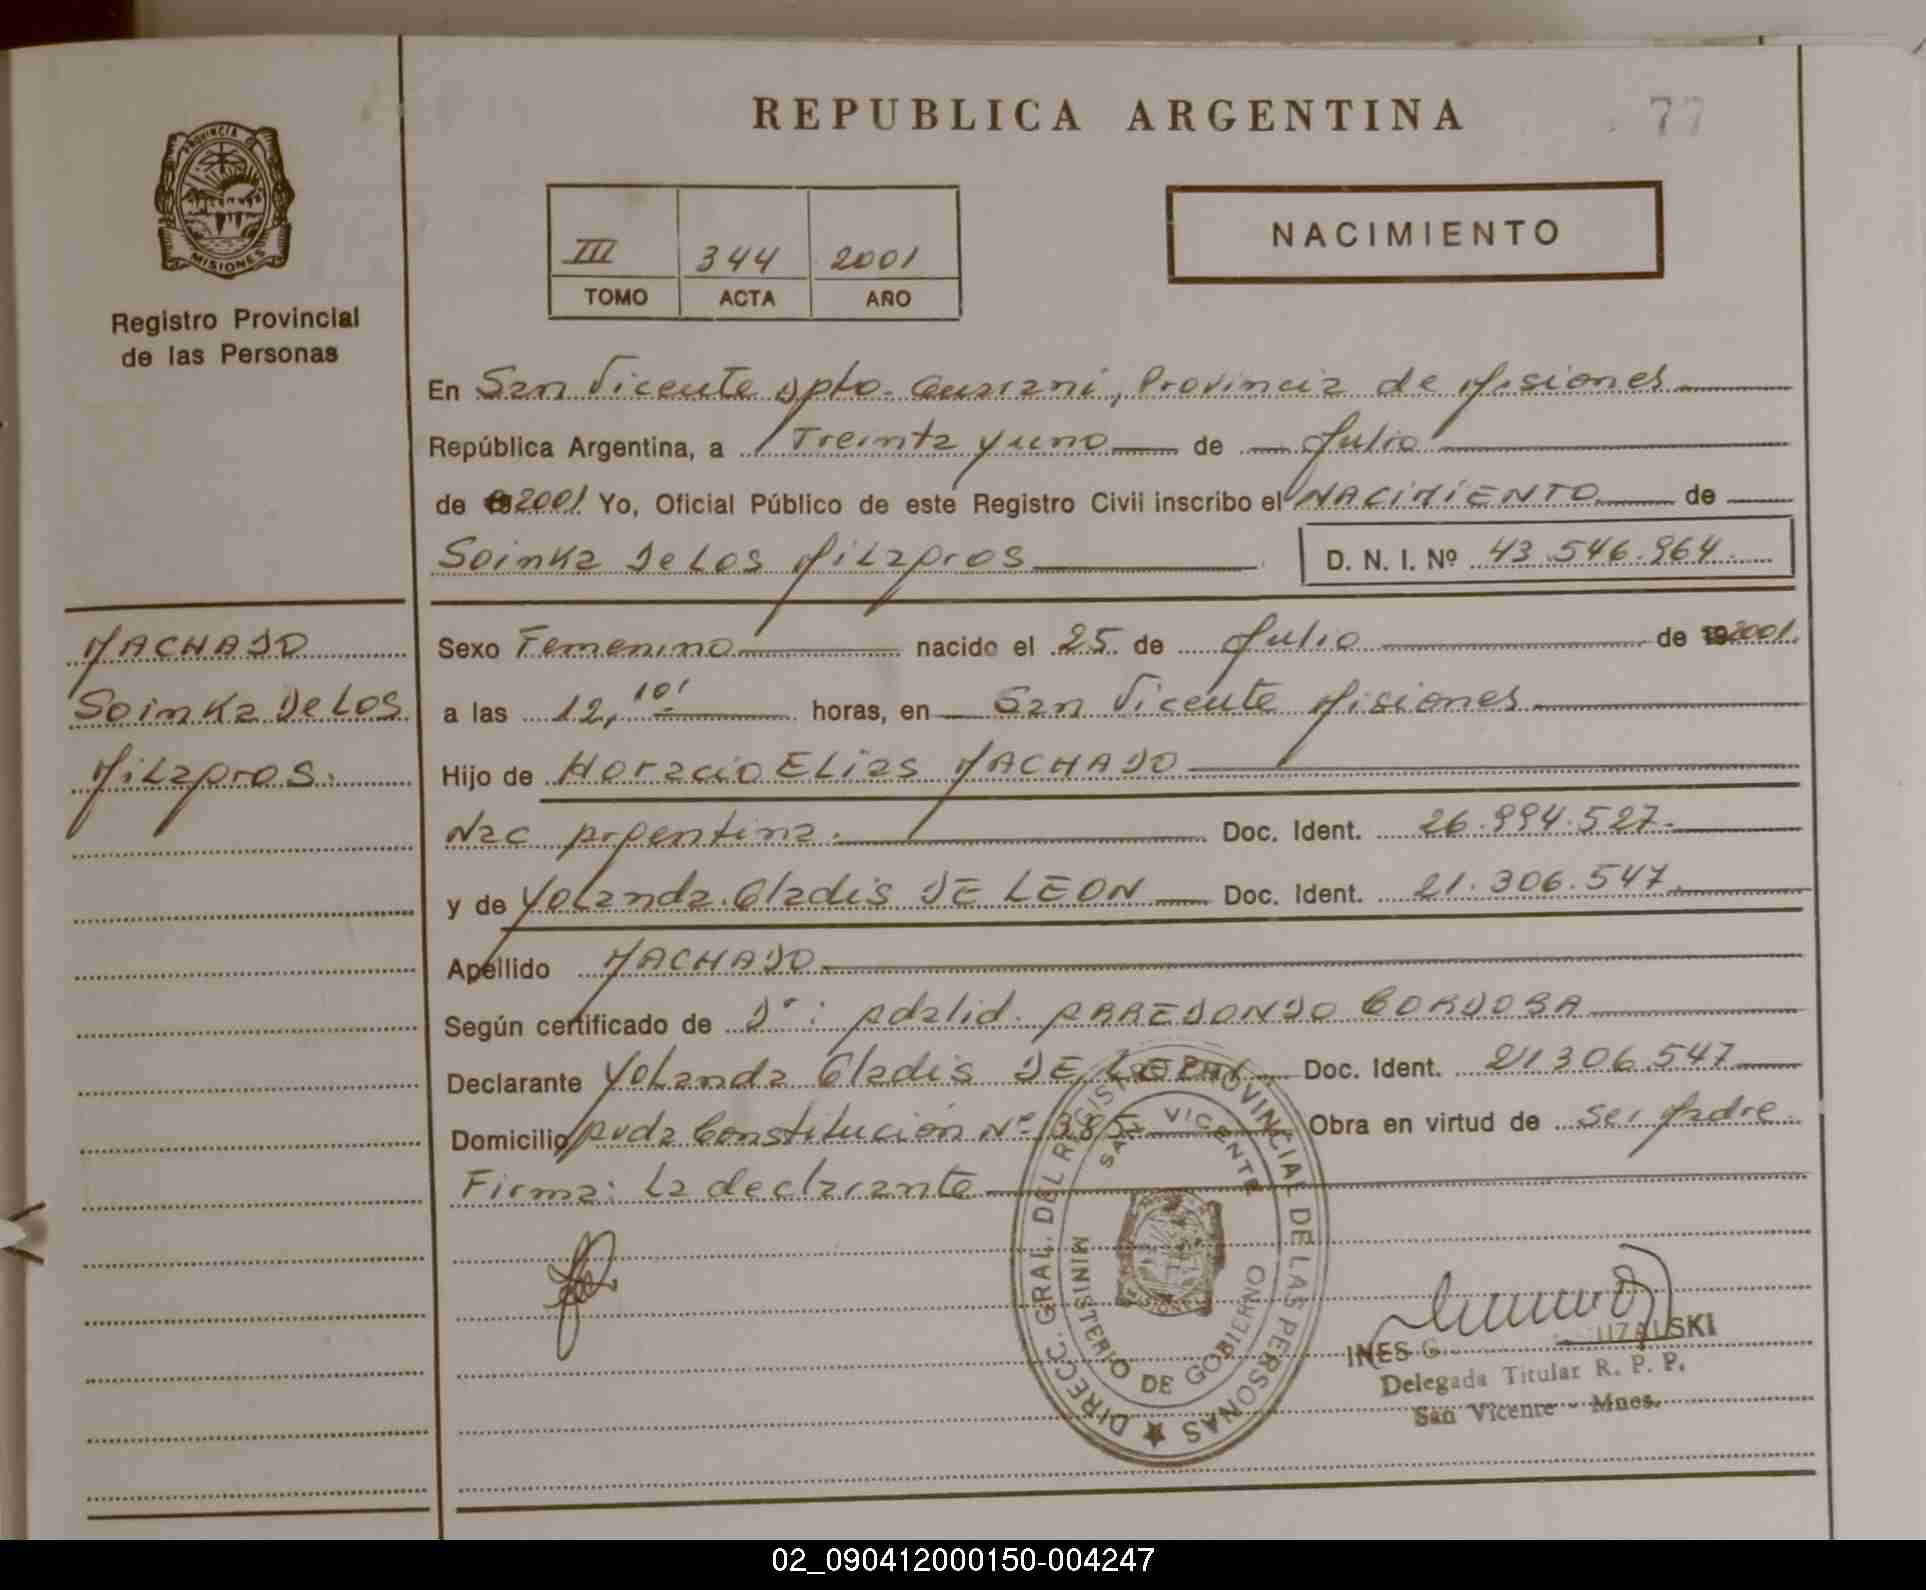 REPUBLICA ARGENTINA
77
PROVINCIA D
MISIONES
Registro Provincial
de las Personas
III 344 2001
TOMO ACTA AÑO
NACIMIENTO
En San Vicente Dpto. Guarani, Provincia de Misiones
República Argentina, a Treinta y uno de Julio
de 2001 Yo, Oficial Público de este Registro Civil inscribo el NACIMIENTO de
Soinka De Los Milagros D. N. I. Nº 43.546.964.
MACHADO
Soinka De Los
Milagros.
Sexo Femenino nacido el 25 de Julio de 2001.
a las 12,10' horas, en San Vicente Misiones
Hijo de Horacio Elias MACHADO
Nac Argentina. Doc. Ident. 26.994.527.
y de Yolanda Gladis DE LEON Doc. Ident. 21.306.547.
Apellido MACHADO
Según certificado de Dr: Adalid ARREDONDO CORDOBA
Declarante Yolanda Gladis DE LEON Doc. Ident. 21.306.547
Domicilio Avda Constitución Nº Obra en virtud de Ser Madre.
Firma: La declarante
DIRECC. GRAL. DEL REGISTRO PROVINCIAL DE LAS PERSONAS
SAN VICENTE
MINISTERIO DE GOBIERNO
MISIONES
INES G
Delegada Titular R. P. P.
San Vicente - Mnes.
02_090412000150-004247